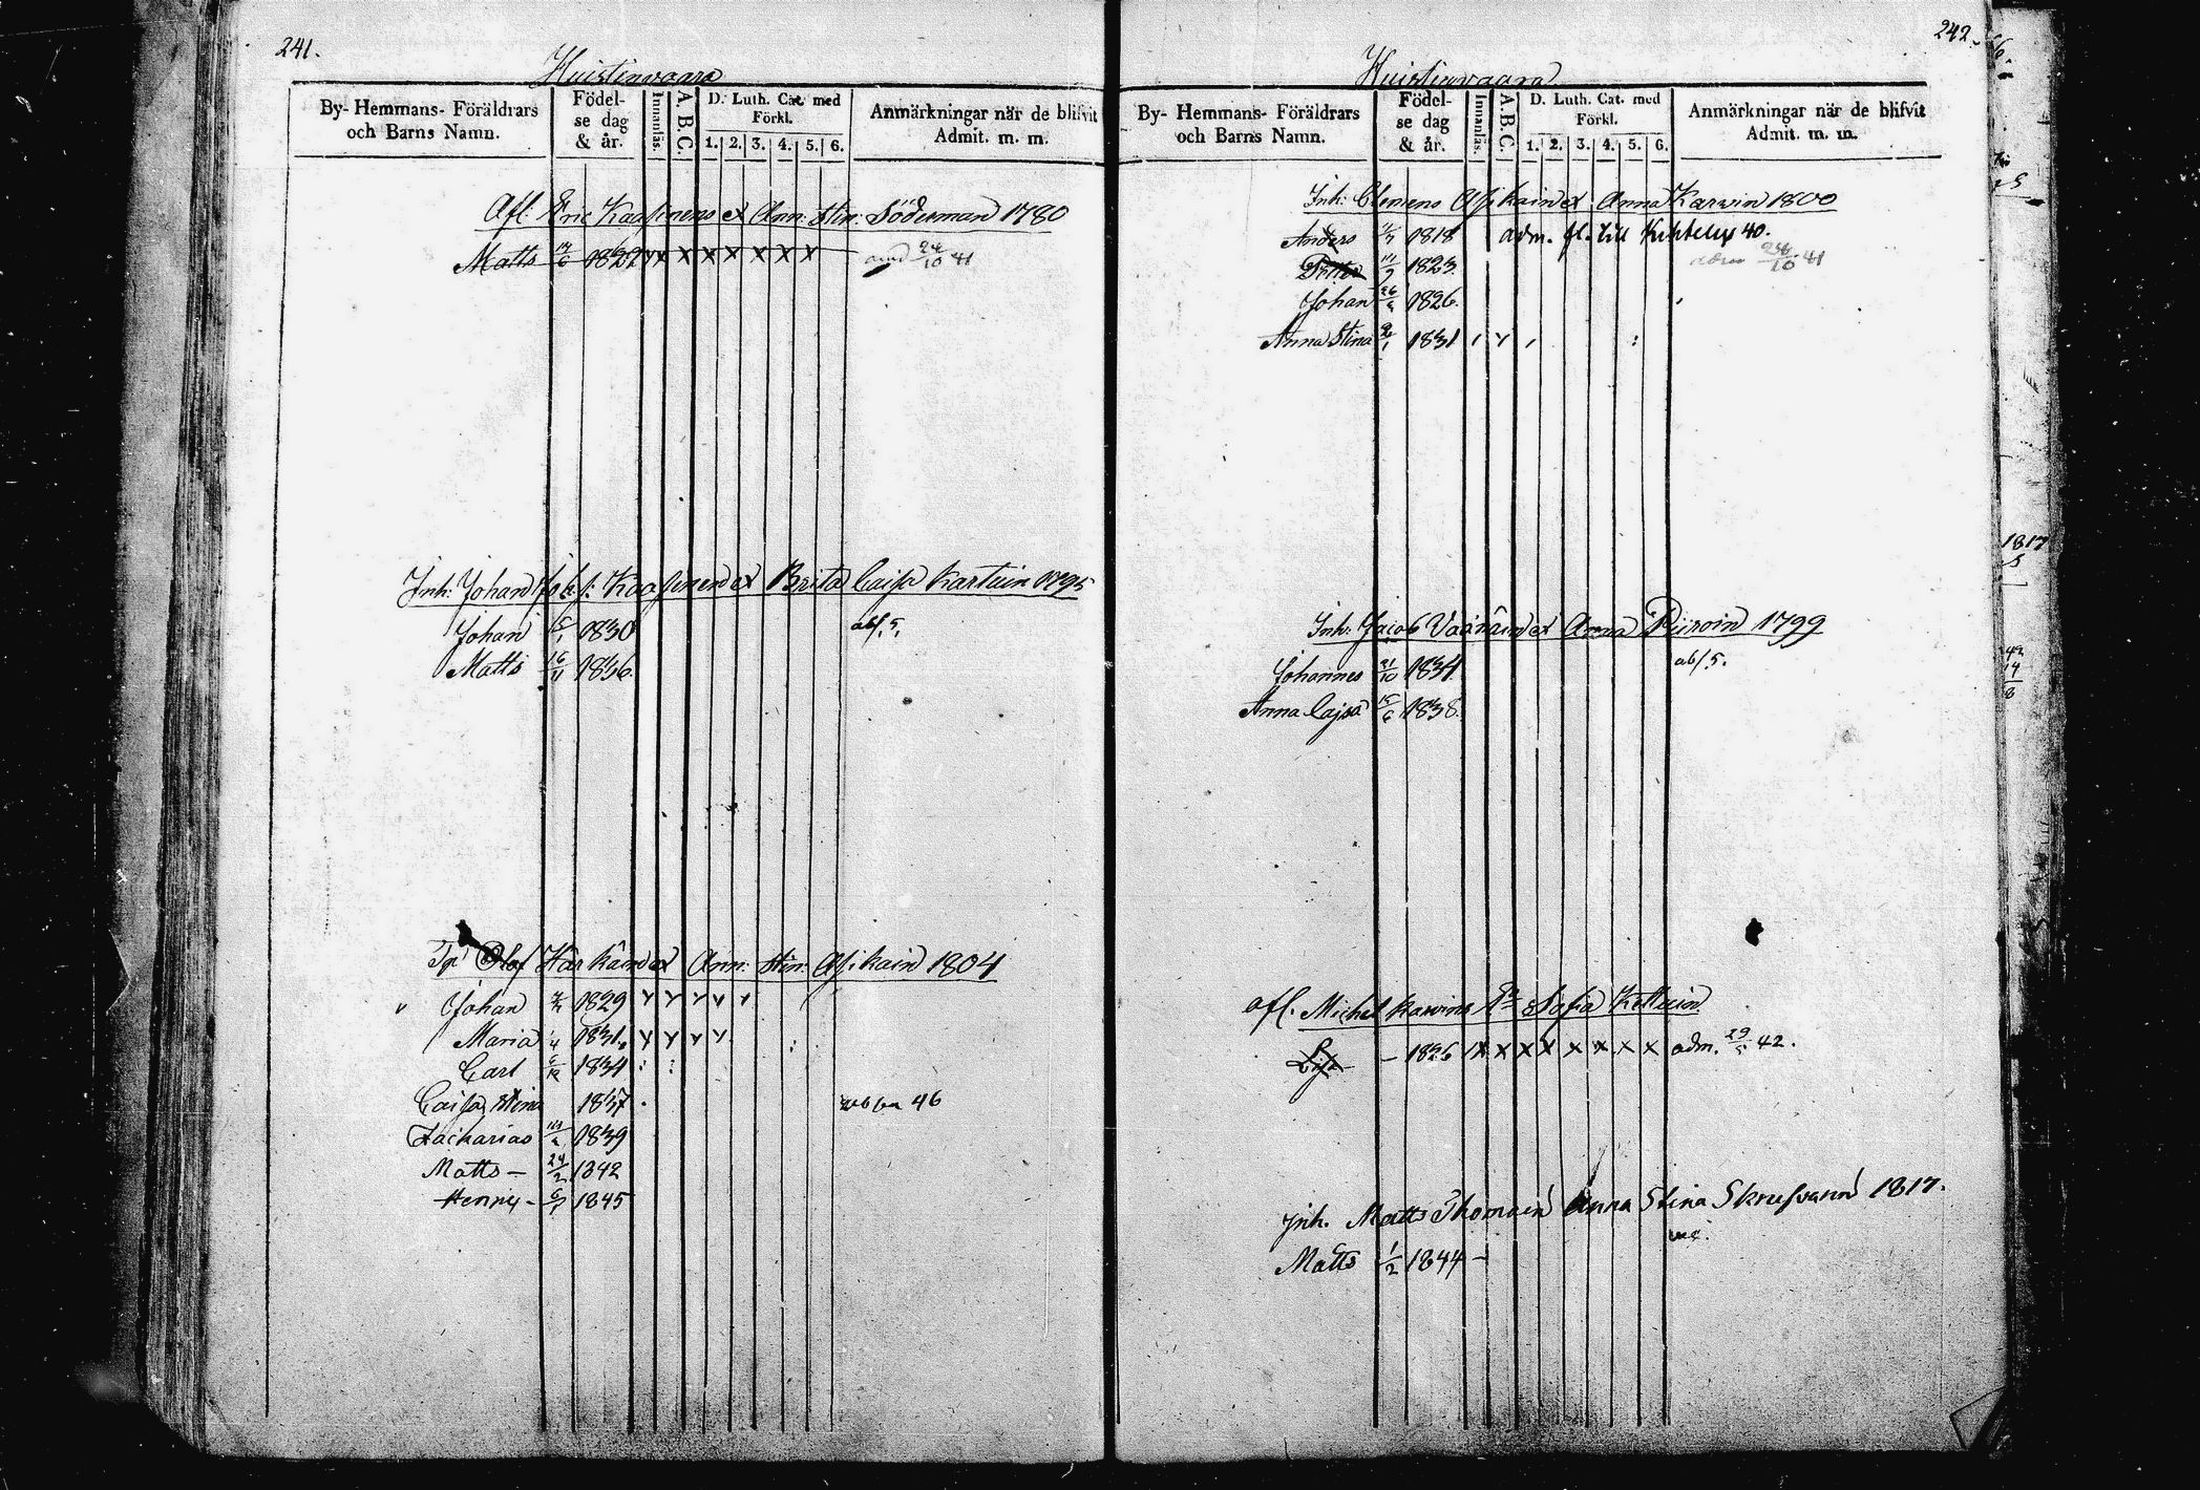 241.
Huistinvaara
By- Hemmans- Föräldrars och Barns Namn.
Födelse dag & år.
Innanläs.
A. B. C.
D. Luth. Cat. med Förkl.
1. 2. 3. 4. 5. 6.
Anmärkningar när de blifvit Admit. m. m.
Afl. Eric Kaasinens et Ann: Stin: Söderman 1780
Matts 1827 x x x x x x x 24/10 41
Inh: Johan Kaasinen et Brita Caisa Kartuin 1795
Johan 15/1 1830 abs. 5.
Matts 16/11 1836.
Olof Harkäin et Ann: Stin: Asikain 1804
Johan 1829 v v v v v
Maria 1/4 1831. v v v v
Carl 6/12 1834
Caisa Stina 1837
46
Zacharias 1839
Matts – 24/2 1842
Henny – 1845
242.
Huistinvaara
By- Hemmans- Föräldrars och Barns Namn.
Födelse dag & år.
Innanläs.
A. B. C.
D. Luth. Cat. med Förkl.
1. 2. 3. 4. 5. 6.
Anmärkningar när de blifvit Admit. m. m.
Inh: Clemens Asikain et Anna Karvin 1800
Anders 1818 adm. fl. till 40.
Petter 1823. 24/10 41
Johan 1826.
Anna Stina 2/1 1831
Inh. Jacob Väänäin et Anna Piiroin 1799
abs. 5.
Johannes 21/10 1834
Anna Cajsa 15/6 1838.
Afl. Michel Karvins Sofia Kettuin
Lisa – 1826 x x x x x x x x adm. 29/5 42.
Inh. Matts Thomain Anna Stina Skrufvarn 1817.
Matts 1/2 1844 –